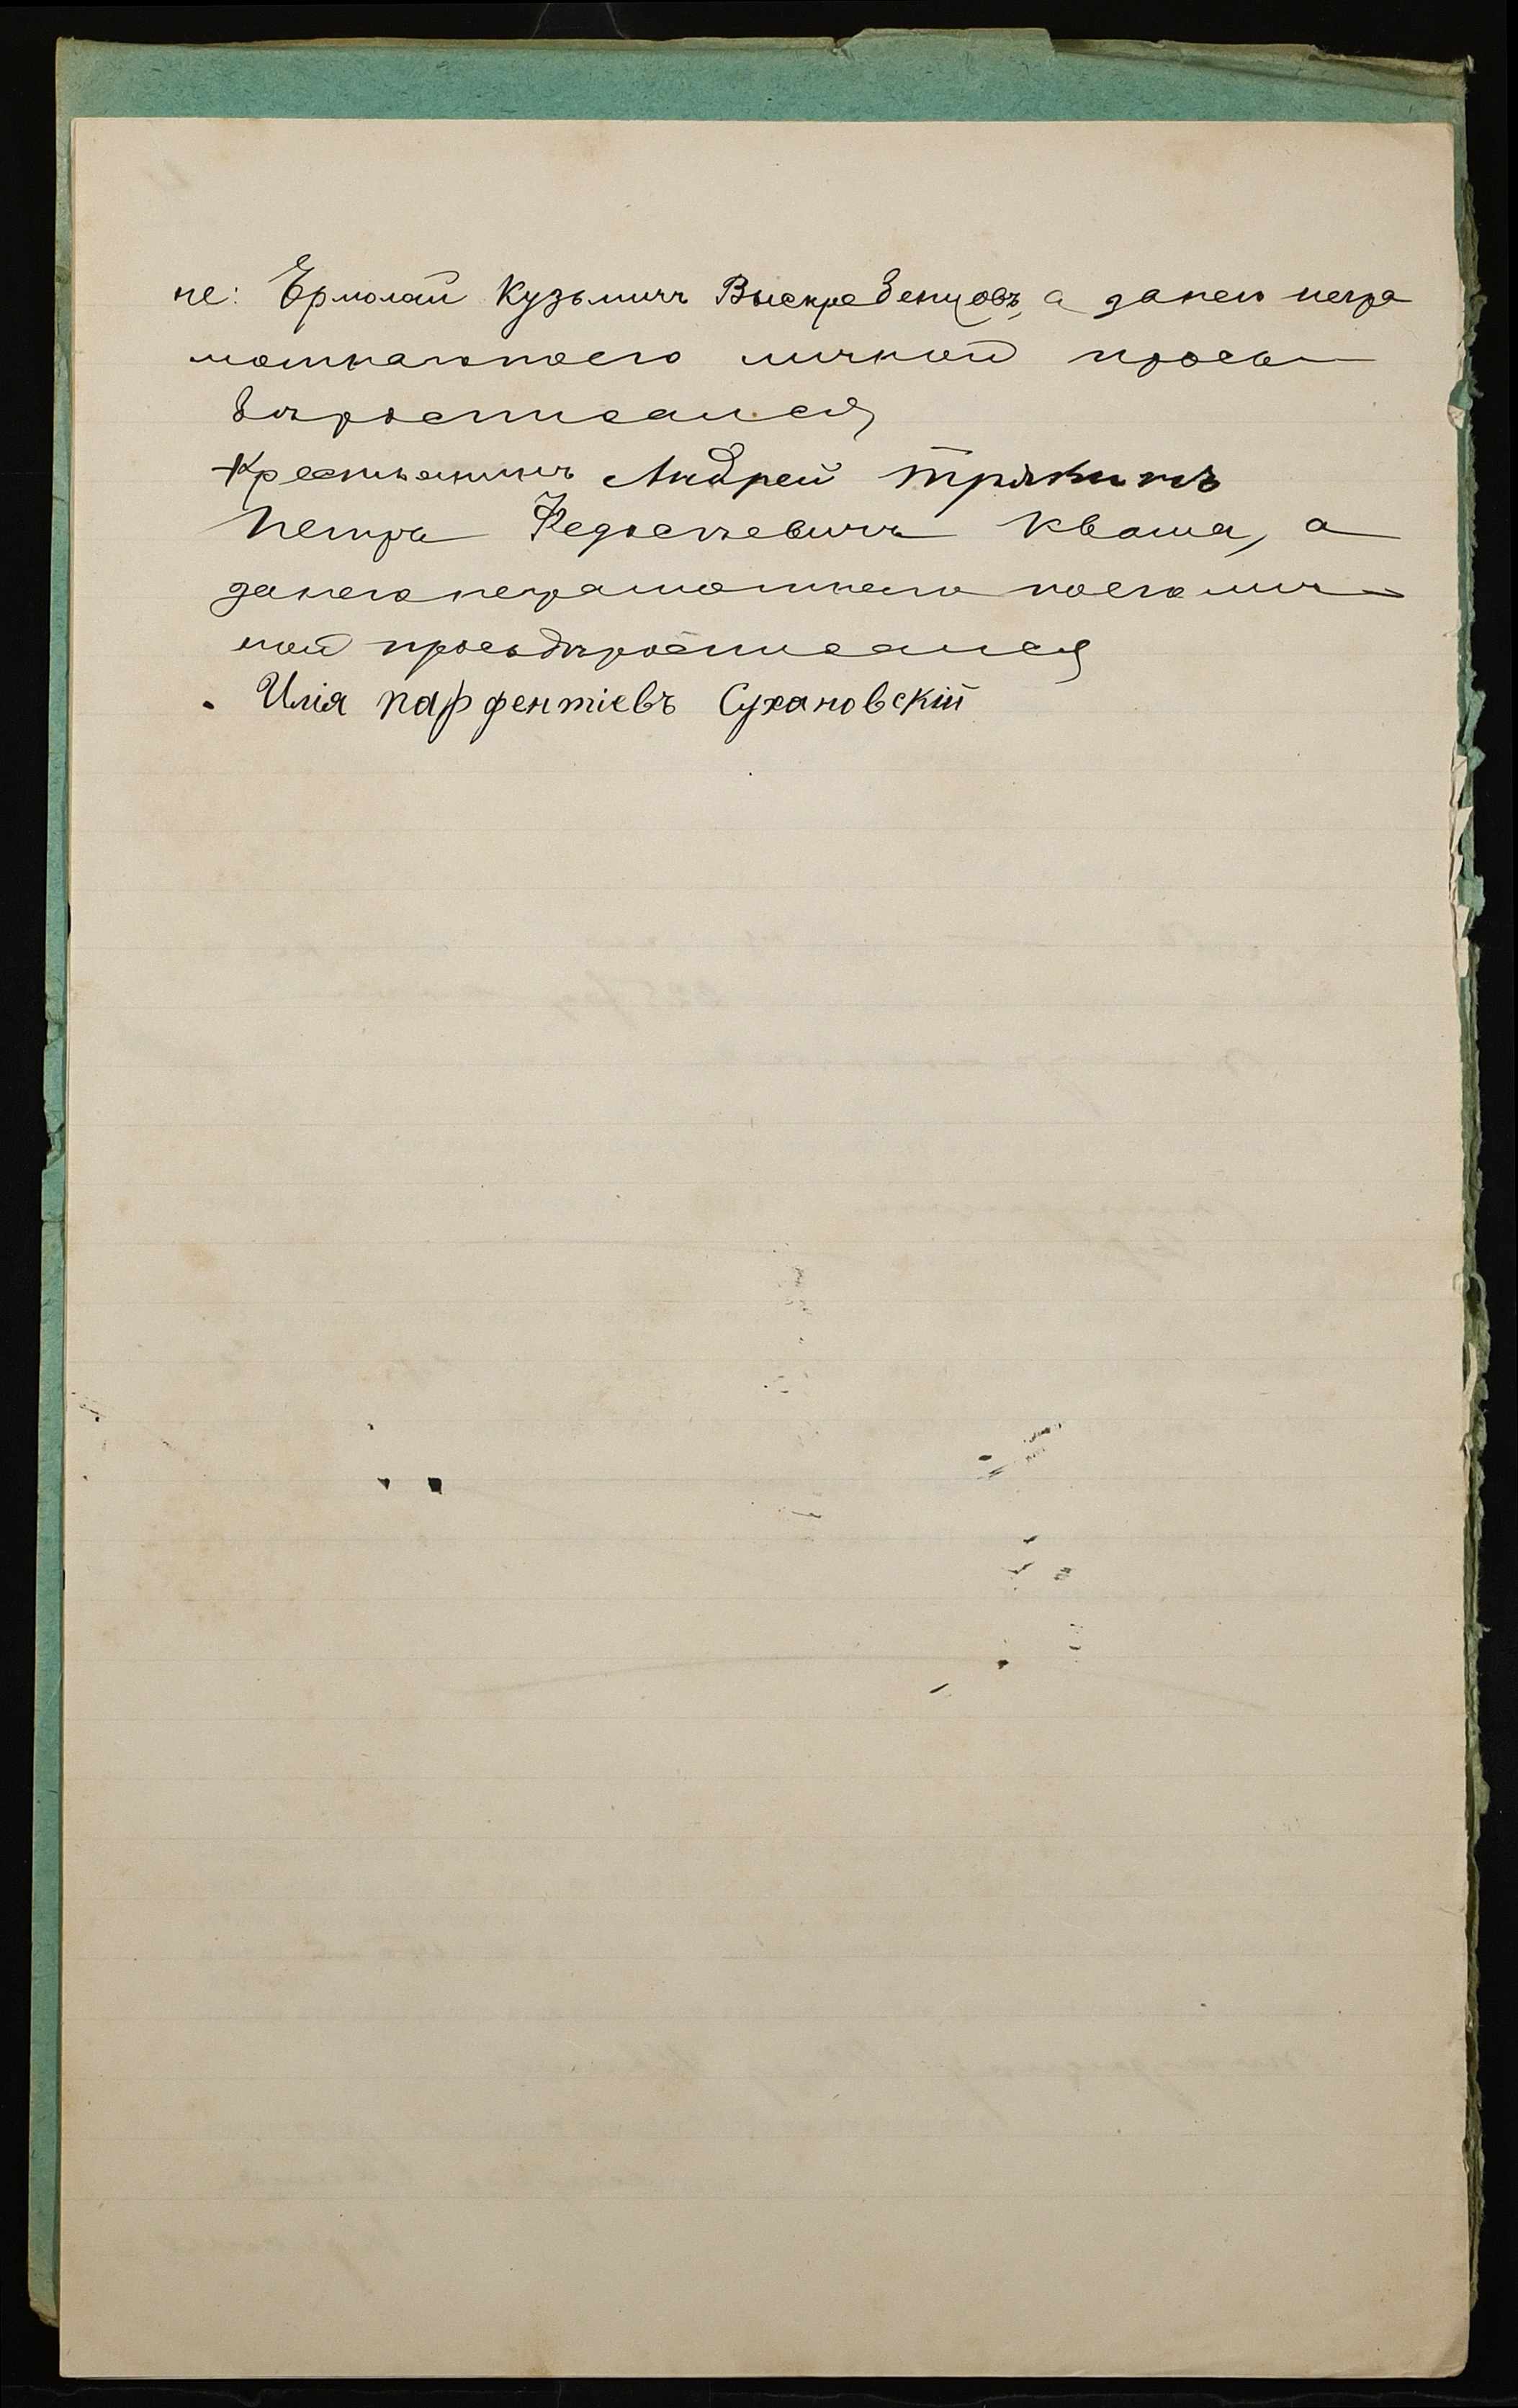 не: Ермолай Кузьмичъ Выскребенцовъ, а занего негра
мотнаго поего личной прось
бѣ росписался
Крестьянинъ Андрей Трякинъ
Петра Федосѣевичъ Кваша, а
занего неграмотнаго поего лич-
ной просьбѣ росписался
Илія парфентіевъ Сухановскій